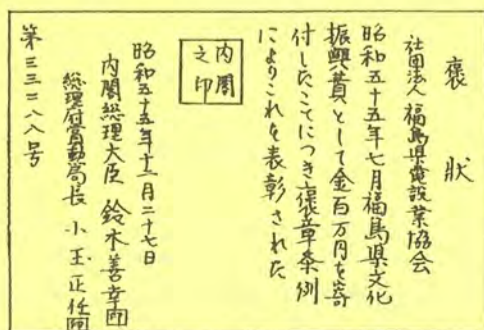 褒状
社団法人 福島県電設業協会
昭和五十五年七月福島県文化
振興費として金百万円を寄
付したことにつき褒章条例
によりこれを表彰された
内閣
之印
昭和五十五年十一月二十七日
内閣総理大臣 鈴木善幸 印
総理府賞勲局長 小玉正任 印
第三三二八八号